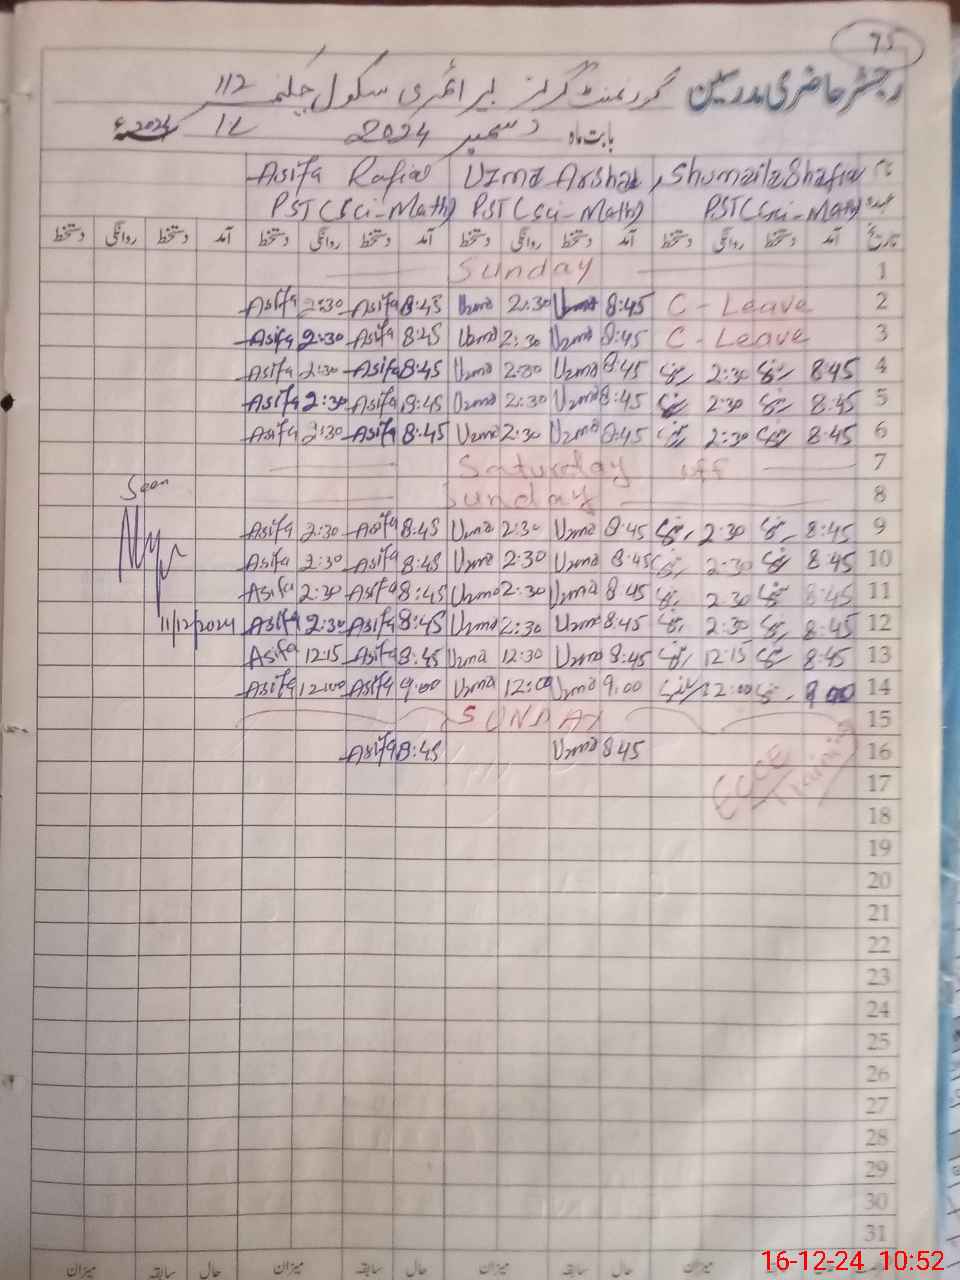 75
رجسٹر حاضری مدرسین گورنمنٹ گرلز پرائمری سکول چک نمبر 112
بابت ماہ دسمبر 2024 12 2024ء
نام Shumaila Shafiq Uzma Arshad, Asifa Rafiq
عہدہ PST(Sci-Math) PST(Sci-Math) PST(Sci-Math)
تاریخ آمد دستخط روانگی دستخط آمد دستخط روانگی دستخط آمد دستخط روانگی دستخط آمد دستخط روانگی دستخط
Sunday 1
Asifa 2:30 Asifa 8:45 Uzma 2:30 Uzma 8:45 C - Leave 2
Asifa 2:30 Asifa 8:45 Uzma 2:30 Uzma 8:45 C - Leave 3
Asifa 2:30 Asifa 8:45 Uzma 2:30 Uzma 8:45 2:30 8:45 4
Asifa 2:30 Asifa 8:45 Uzma 2:30 Uzma 8:45 2:30 8:45 5
Asifa 2:30 Asifa 8:45 Uzma 2:30 Uzma 8:45 2:30 8:45 6
Saturday off 7
Seen
Sunday 8
Asifa 2:30 Asifa 8:45 Uzma 2:30 Uzma 8:45 2:30 8:45 9
Asifa 2:30 Asifa 8:45 Uzma 2:30 Uzma 8:45 2:30 8:45 10
Asifa 2:30 Asifa 8:45 Uzma 2:30 Uzma 8:45 2:30 8:45 11
11/12/2024 Asifa 2:30 Asifa 8:45 Uzma 2:30 Uzma 8:45 2:30 8:45 12
Asifa 12:15 Asifa 8:45 Uzma 12:30 Uzma 8:45 12:15 8:45 13
Asifa 12:00 Asifa 9:00 Uzma 12:00 Uzma 9:00 12:00 9:00 14
SUNDAY 15
Asifa 8:45 Uzma 8:45 16
ECCE Training
17
18
19
20
21
22
23
24
25
26
27
28
29
30
31
حال سابقہ میزان حال سابقہ میزان حال سابقہ میزان
16-12-24 10:52